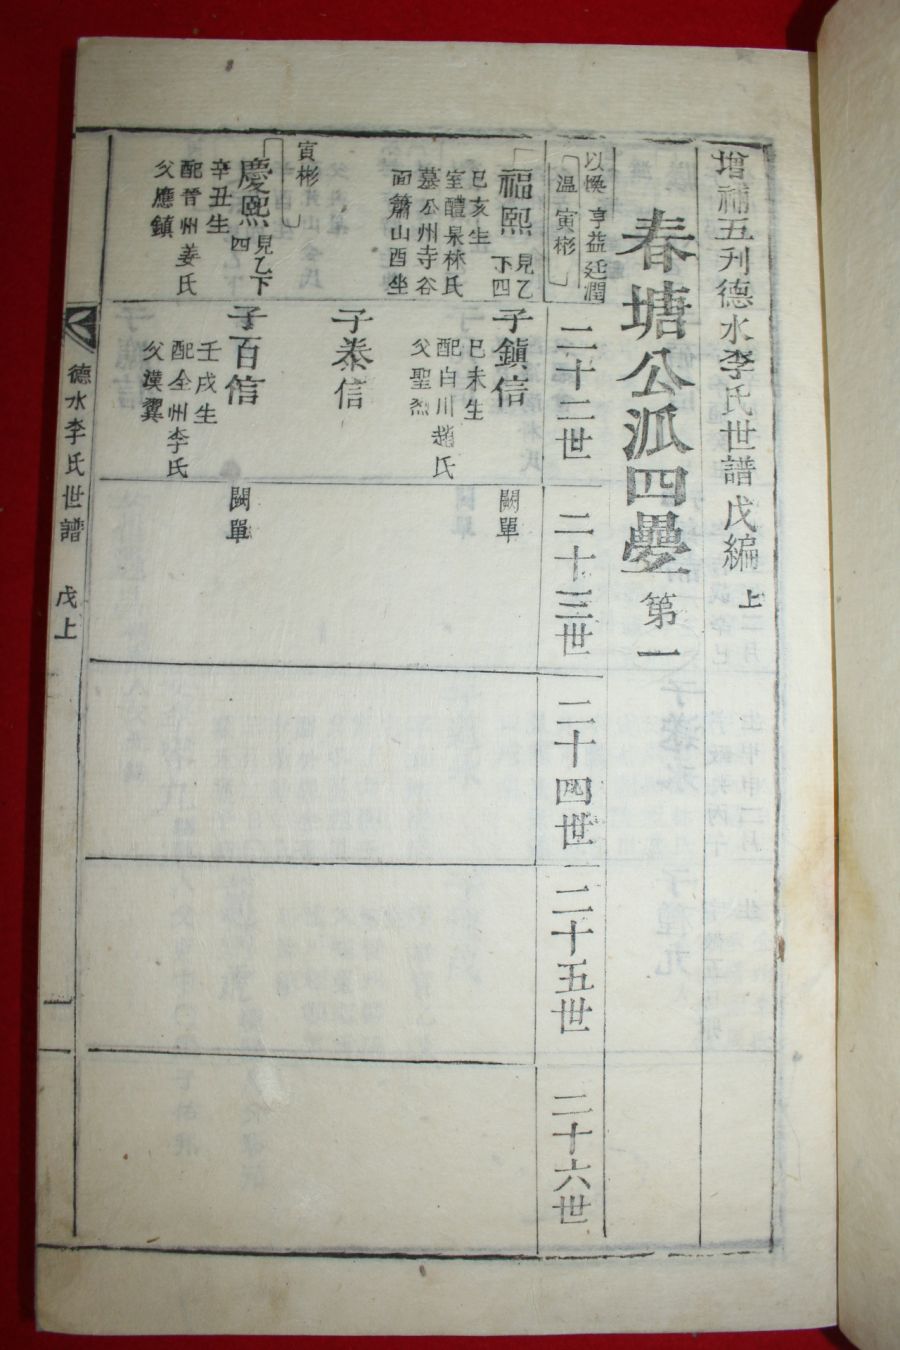 增補五刋德水李氏世譜戊編 上
春塘公派四疊 第一
以愌 亨益廷潤
溫 寅彬
二十二世
二十三世
二十四世
二十五世
二十六世
福熙 見乙
下四
巳亥生
室醴泉林氏
墓公州寺谷
面簫山酉坐
子鎭信
巳未生
配白川趙氏
父聖烈
闕單
子泰信
寅彬
慶熙 見乙下
四
辛丑生
配晉州姜氏
父應鎮
子百信
壬戌生
配全州李氏
父漢翼
闕單
德水李氏世譜 戊上
一